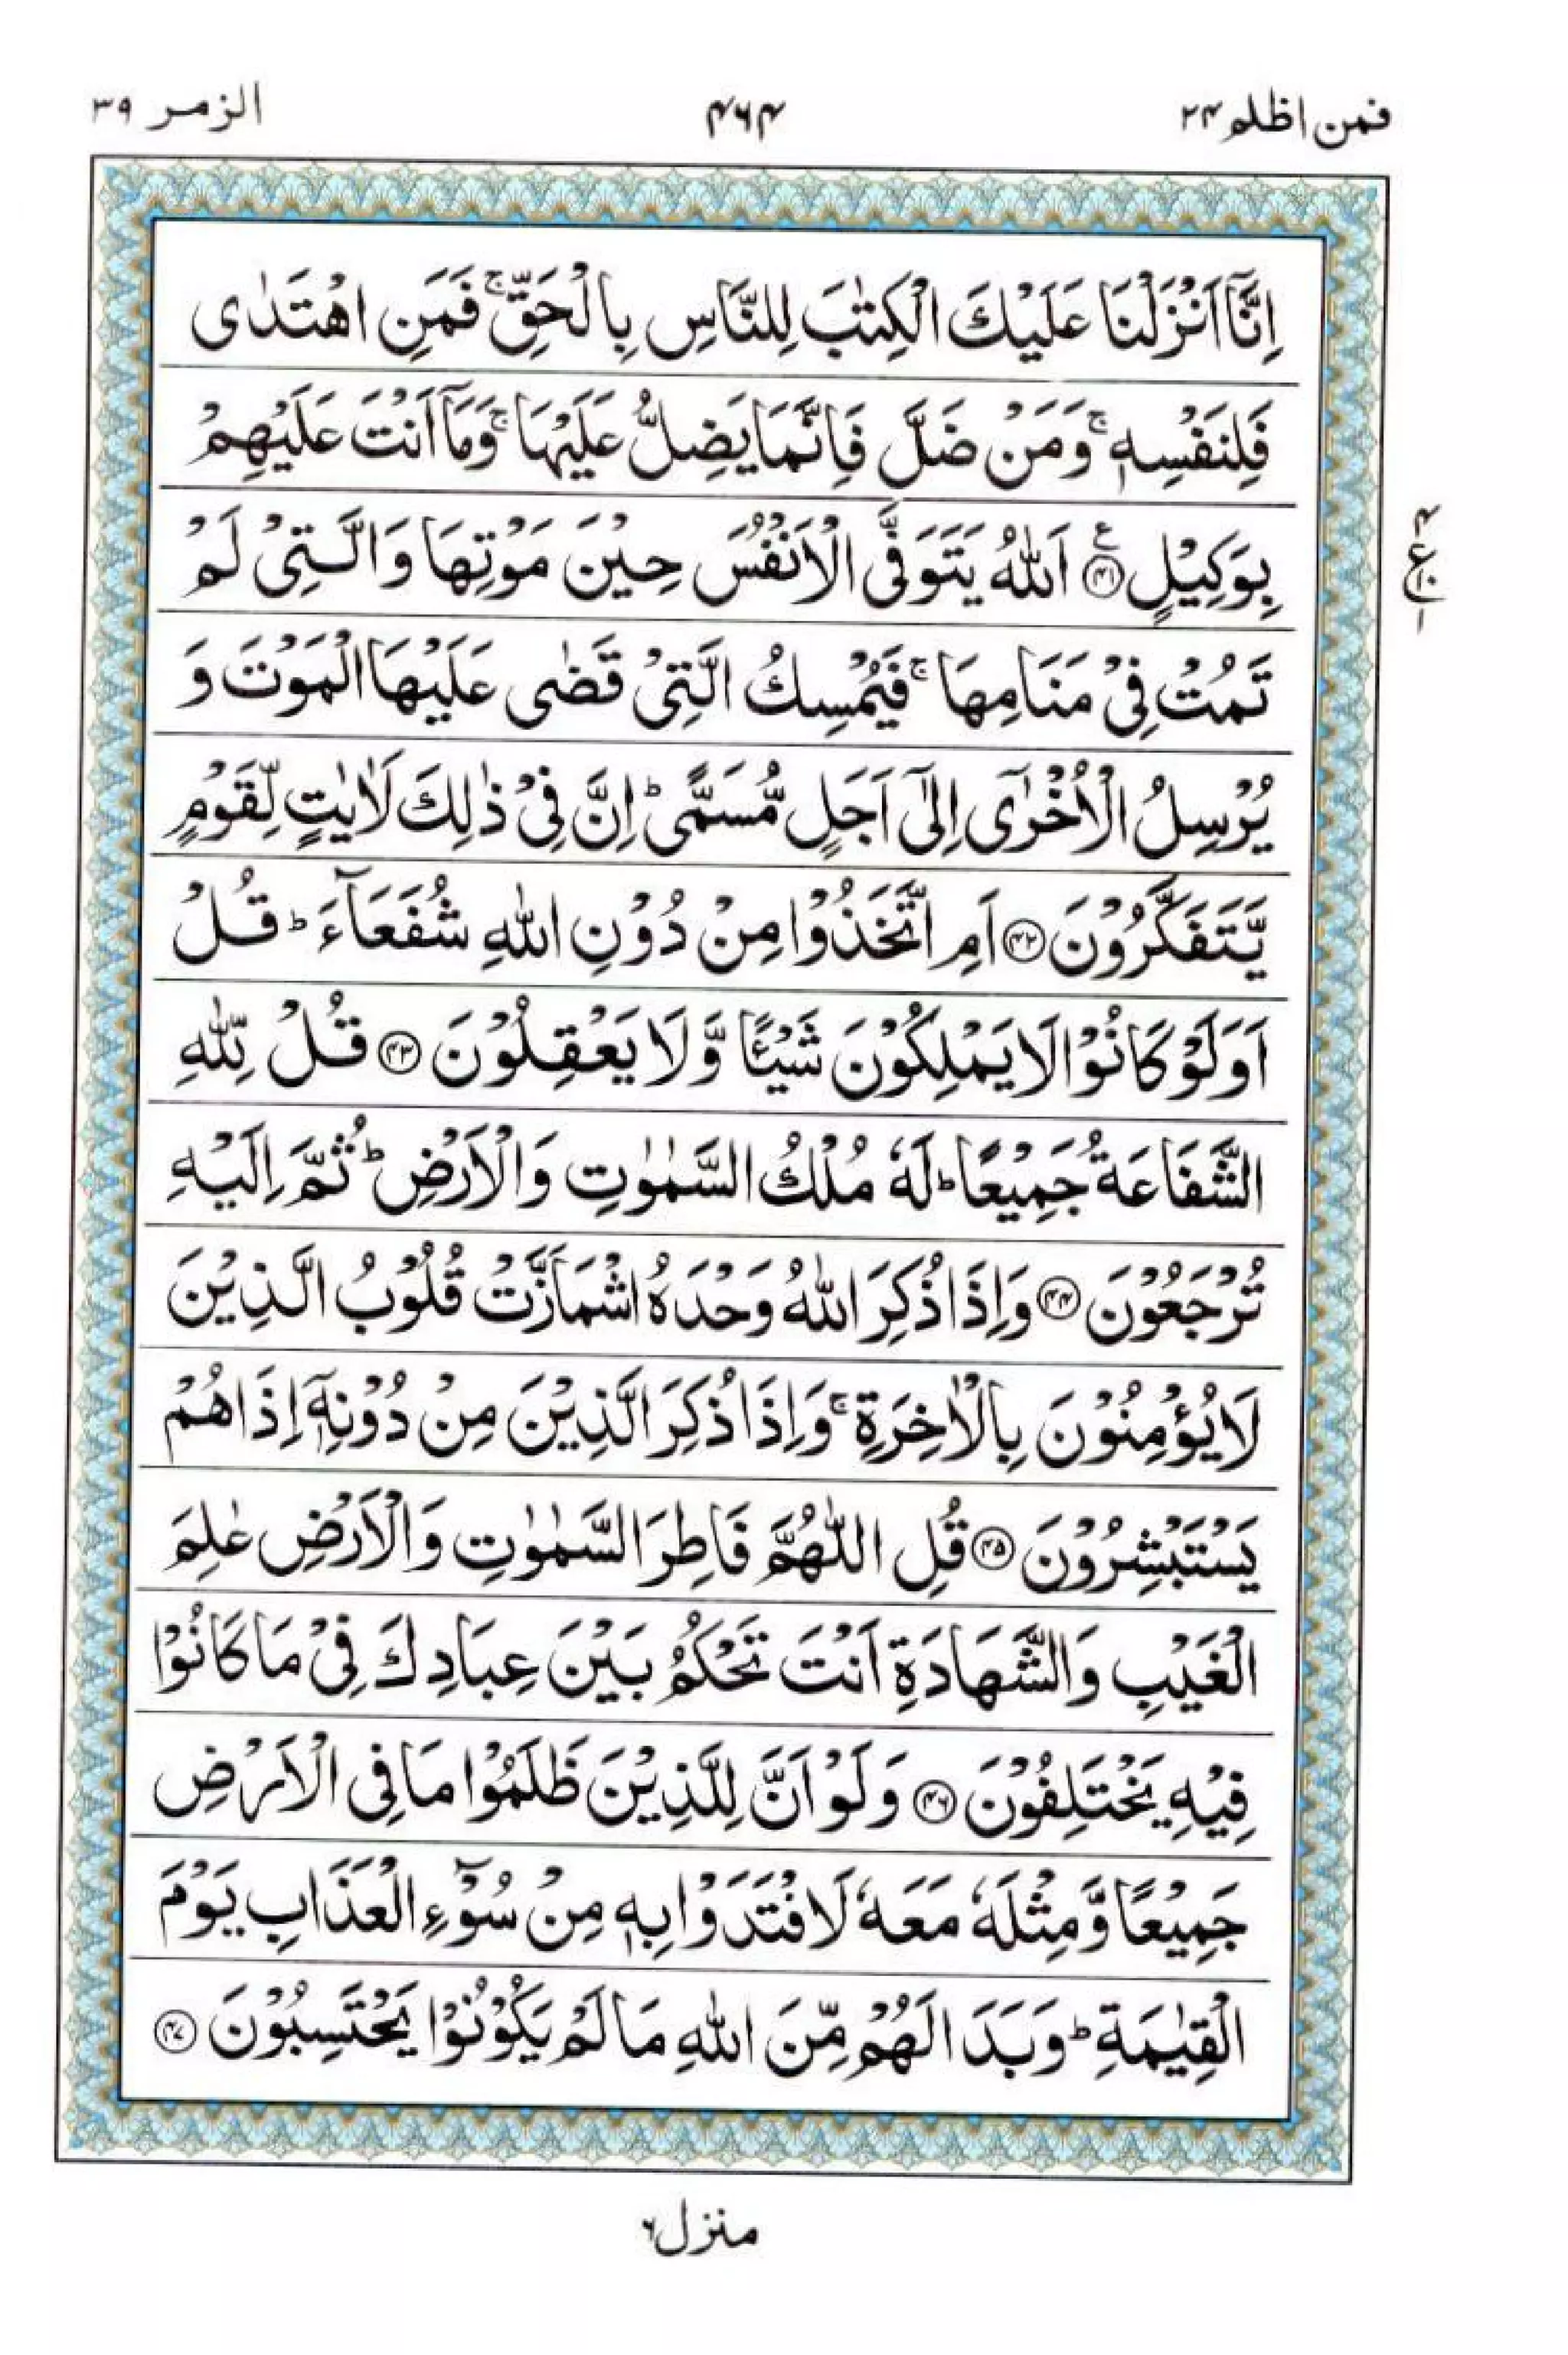 فمن اظلم ۲۴
۴۶۴
الزمر ۳۹
اِنَّاۤ اَنْزَلْنَا عَلَيْكَ الْكِتٰبَ لِلنَّاسِ بِالْحَقِّ ۚ فَمَنِ اهْتَدٰى
فَلِنَفْسِهٖ ۚ وَمَنْ ضَلَّ فَاِنَّمَا يَضِلُّ عَلَيْهَا ۚ وَمَاۤ اَنْتَ عَلَيْهِمْ
بِوَكِيْلٍ ﴿۴۱﴾ ع اَللّٰهُ يَتَوَفَّى الْاَنْفُسَ حِيْنَ مَوْتِهَا وَالَّتِىْ لَمْ
۴ ع ۱۰ ۱
تَمُتْ فِىْ مَنَامِهَا ۚ فَيُمْسِكُ الَّتِىْ قَضٰى عَلَيْهَا الْمَوْتَ وَ
يُرْسِلُ الْاُخْرٰۤى اِلٰٓى اَجَلٍ مُّسَمًّى ؕ اِنَّ فِىْ ذٰلِكَ لَاٰيٰتٍ لِّقَوْمٍ
يَّتَفَكَّرُوْنَ ﴿۴۲﴾ اَمِ اتَّخَذُوْا مِنْ دُوْنِ اللّٰهِ شُفَعَآءَ ؕ قُلْ
اَوَلَوْ كَانُوْا لَا يَمْلِكُوْنَ شَيْـًٔا وَّلَا يَعْقِلُوْنَ ﴿۴۳﴾ قُلْ لِّلّٰهِ
الشَّفَاعَةُ جَمِيْعًا ؕ لَهٗ مُلْكُ السَّمٰوٰتِ وَالْاَرْضِ ؕ ثُمَّ اِلَيْهِ
تُرْجَعُوْنَ ﴿۴۴﴾ وَاِذَا ذُكِرَ اللّٰهُ وَحْدَهُ اشْمَاَزَّتْ قُلُوْبُ الَّذِيْنَ
لَا يُؤْمِنُوْنَ بِالْاٰخِرَةِ ۚ وَاِذَا ذُكِرَ الَّذِيْنَ مِنْ دُوْنِهٖۤ اِذَا هُمْ
يَسْتَبْشِرُوْنَ ﴿۴۵﴾ قُلِ اللّٰهُمَّ فَاطِرَ السَّمٰوٰتِ وَالْاَرْضِ عٰلِمَ
الْغَيْبِ وَالشَّهَادَةِ اَنْتَ تَحْكُمُ بَيْنَ عِبَادِكَ فِىْ مَا كَانُوْا
فِيْهِ يَخْتَلِفُوْنَ ﴿۴۶﴾ وَلَوْ اَنَّ لِلَّذِيْنَ ظَلَمُوْا مَا فِى الْاَرْضِ
جَمِيْعًا وَّمِثْلَهٗ مَعَهٗ لَافْتَدَوْا بِهٖ مِنْ سُوْٓءِ الْعَذَابِ يَوْمَ
الْقِيٰمَةِ ؕ وَبَدَا لَهُمْ مِّنَ اللّٰهِ مَا لَمْ يَكُوْنُوْا يَحْتَسِبُوْنَ ﴿۴۷﴾
منزل ۶